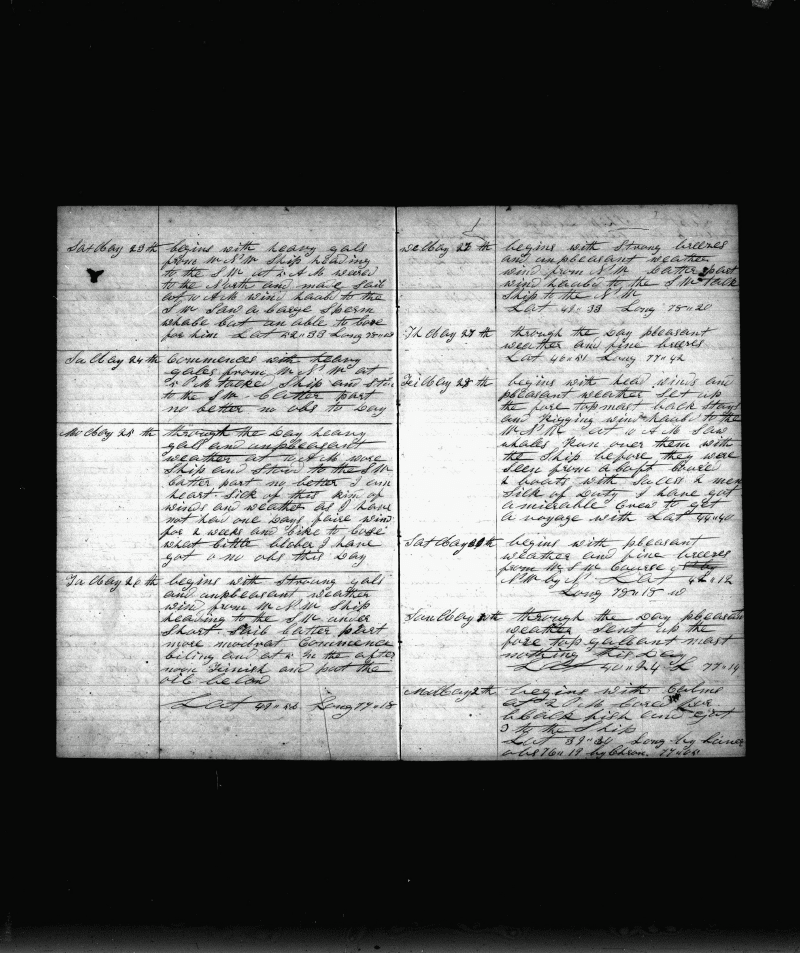 Sat May 23th begins with heavy gals
from W N W Ship heading
to the S W at A M weared
to the North and made sail
at 10 A M wind hauld to the
S W Saw a large Sperm
whale but un able to lore
for him Lat 52"33 Long
Su May 24th Commences with heavy
gales from W N W at
P M tacked Ship and Stood
to the S W Latter part
no better no obs to Day
Mo May 25th through the Day heavy
gals and unpleasant
weather at A M wore
Ship and Stood to the S W
Latter part no better I am
heart Sick of this kin of
winds and weather as I have
not had one Days faire wind
for 2 weeks and like to lose
what little blober I have
got a no obs this Day
Tu May 26th begins with Stroung gals
and unpleasant weather
wind from W N W Ship
heading to the S W under
Short Sail Latter part
more modorat Commence
biling and at in the after
noon Finish and put the
oil below
Lat 49" Long 77"18
We May 27th begins with Strong breezes
and unpleasant weather
wind from N W Latter part
wind hauld to the S W Tack
Ship to the N W
Lat 33 Long 78"20
Th May 27 through the Day pleasant
weather and fine breezes
Lat 46" Long 77"42
Fri May 28th begins with head winds and
pleasant weather Set up
the fore topmast back Stays
and Rigging wind hauld to the
W S W at 10 A M Saw
whales Run over them with
the Ship before they were
Seen from aloft
2 boats with Sucess 2 men
Sick of Duty I have got
a mirable Crew to get
a voyage with Lat 44"40
Sat May th begins with pleasant
weather and fine breezes
from W S W Course
N W by N Lat 42"12
Long 78"15
Sun May th through the Day pleasant
weather Sent up the
fore top gallant mast
nothing
Lat 40"24 L 77"14
Mo May th begins with Calms
at 2 P M for
black fish and got
to the Ship
Lat 39" Long by Luner
obs 76"19 by Chron 77"